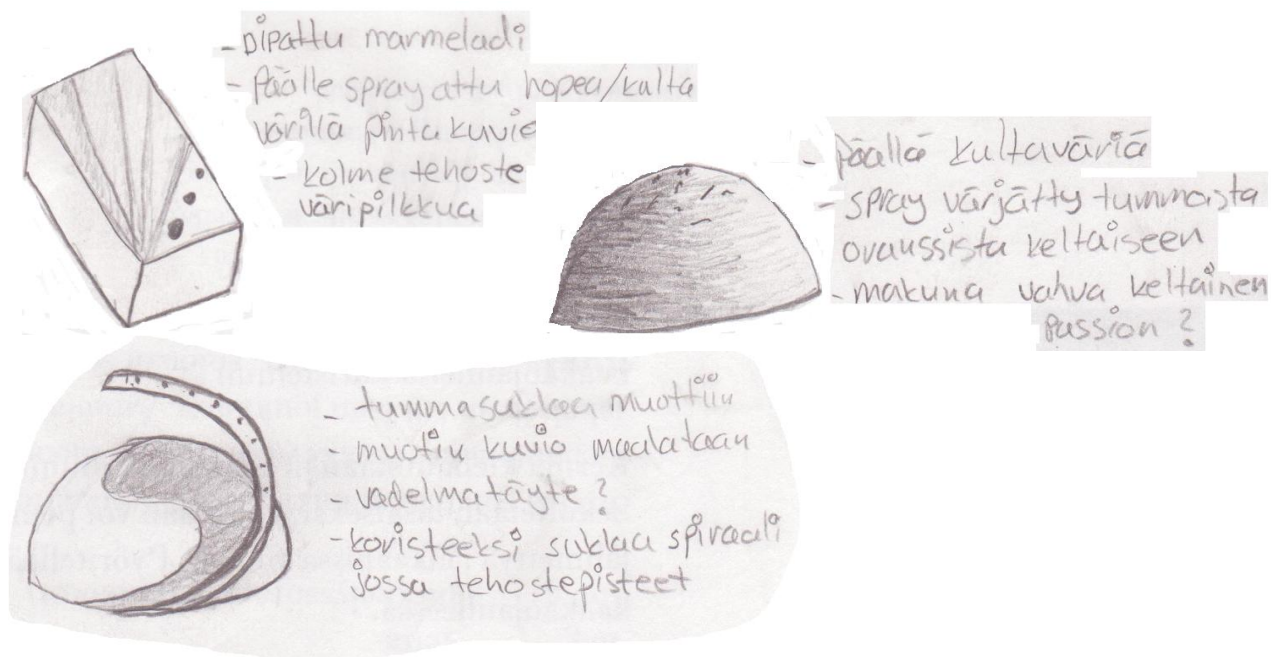 - Dipattu marmeladi
- Päälle sprayattu hopea/kulta
värillä pintakuvio
- kolme tehoste
väripilkkua
- päällä kultaväriä
- spray värjätty tummasta
oranssista keltaiseen
- makuna vahva keltainen
passion?
- tummasuklaa muottiin
- muotin kuvio maalataan
- vadelmatäyte?
- koristeeksi suklaa spiraali
jossa tehostepisteet